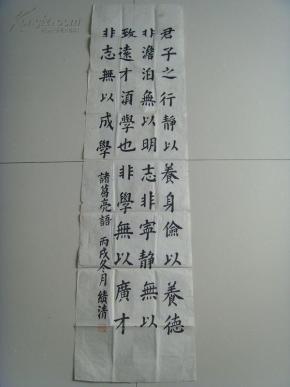 君子之行静以養身儉以養德
非澹泊無以明志非寧静無以
致遠才須學也非學無以廣才
非志無以成學
諸葛亮語 丙戌冬月績清